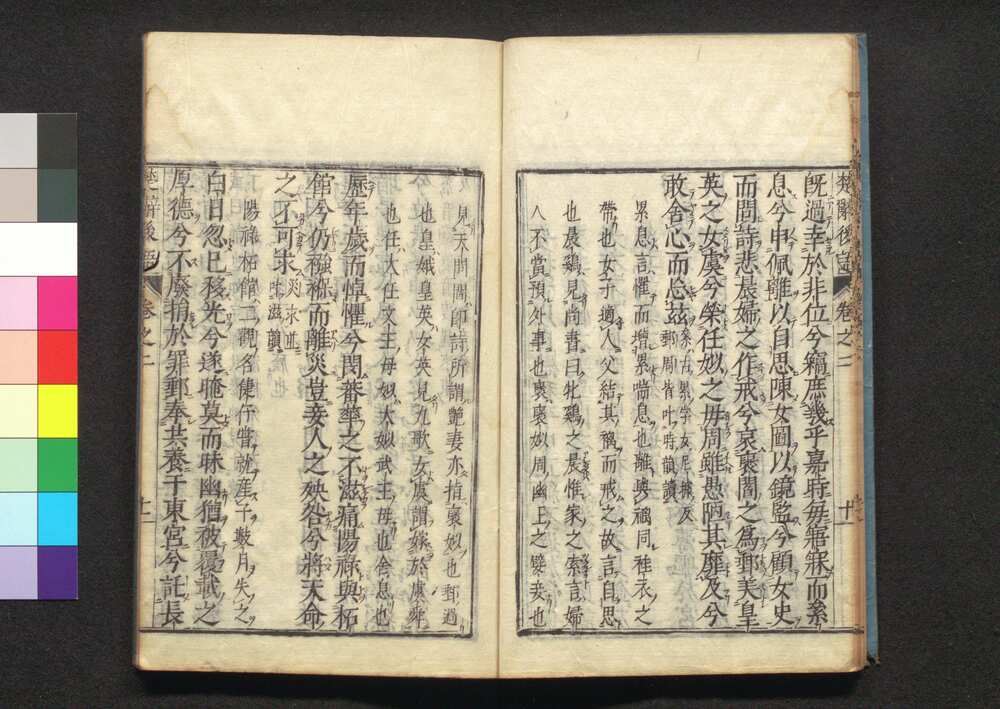 楚辭後語 卷之二 十
既過幸於非位兮竊庶幾乎嘉時每寤寐而絫
息兮申佩離以自思陳女圖以鏡監兮顧女史
而問詩悲晨婦之作戒兮哀褒閻之爲郵美皇
英之女虞兮榮任姒之母周雖愚陋其靡及兮
敢舍心而忘茲
累息言懼而增累喘息也離與褵同袿衣之
帶也女子適人父結其褵而戒之故言自思
也晨鷄見尚書曰牝鷄之晨惟家之索言婦
人不當預外事也褒褒姒周幽王之嬖妾也
見天問閻即詩所謂艶妻亦指褒姒也郵過
也皇娥皇英女英見九歌女虞謂嫁於虞舜
也任大任文王母姒大姒武王母也舍息也
歷年歲而悼懼兮閔蕃華之不滋痛陽祿與柘
館兮仍襁褓而離災豈妾人之殃咎兮將天命
之不可求
陽祿柘館二觀名倢伃嘗就產子數月失之
白日忽已移光兮遂晻莫而昧幽猶被覆載之
厚德兮不廢捐於罪郵奉共養于東宮兮託長
楚辭後語 卷之二 十一